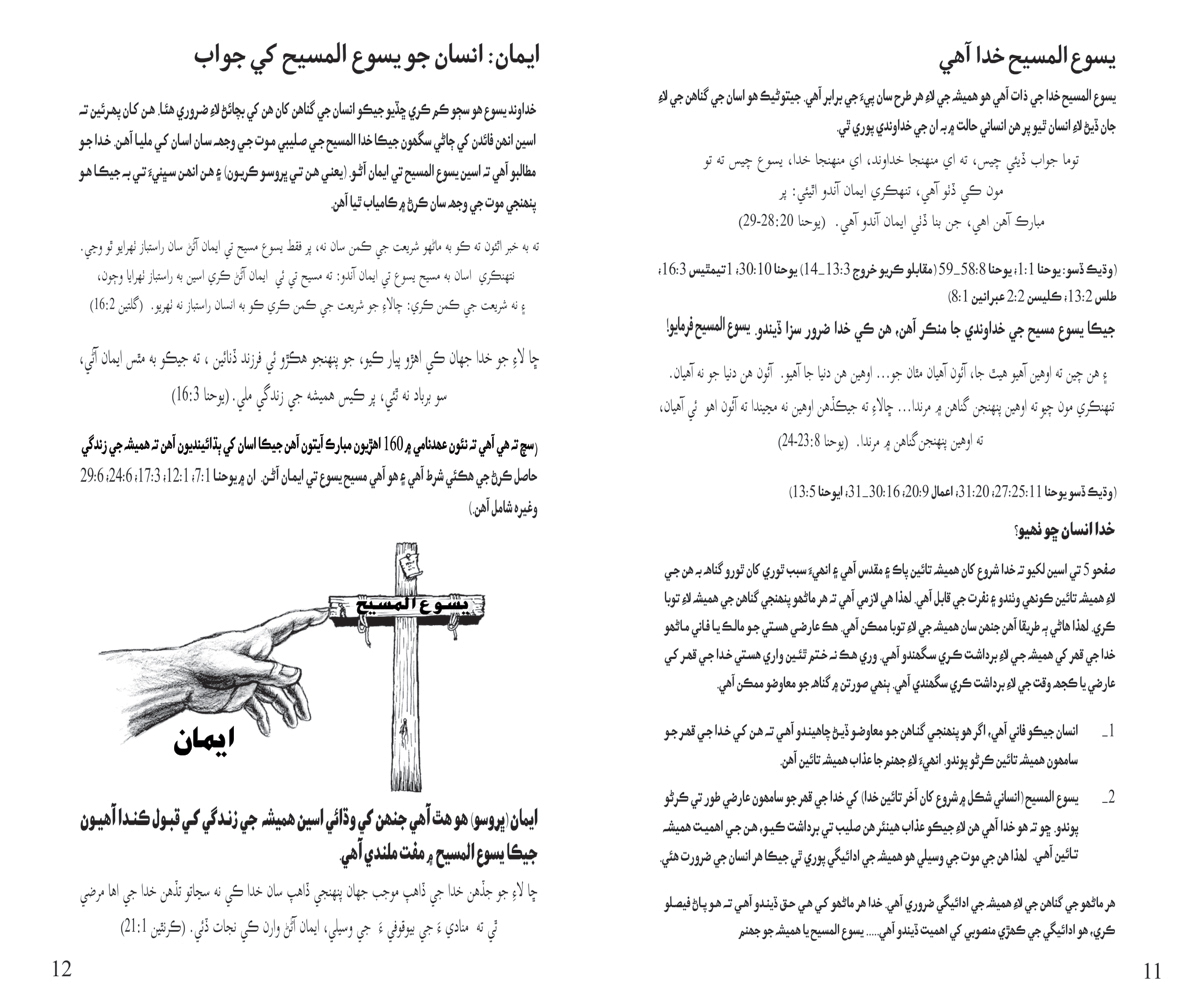 يسوع المسيح خدا آهي
يسوع المسيح خدا جي ذات آهي هو هميشه جي لاءِ هر طرح سان پيءُ جي برابر آهي. جيتوڻيڪ هو اسان جي گناهن جي لاءِ
جان ڏيڻ لاءِ انسان ٿيو پر هن انساني حالت ۾ به ان جي خداوندي پوري ٿي.
توما جواب ڏيئي چيس، ته اي منهنجا خداوند، اي منهنجا خدا، يسوع چيس ته تو
مون کي ڏٺو آهي، تنهڪري ايمان آندو اٿيئي: پر
مبارڪ آهن اهي، جن بنا ڏٺي ايمان آندو آهي. (يوحنا 28:20-29)
(وڌيڪ ڏسو: يوحنا 1:1؛ يوحنا 58:8_59 (مقابلو ڪريو خروج 13:3_14) يوحنا 30:10؛ 1تيمٿيس 16:3؛
طلس 13:2؛ ڪليسن 2:2 عبرانين 8:1)
جيڪا يسوع مسيح جي خداوندي جا منڪر آهن، هن کي خدا ضرور سزا ڏيندو. يسوع المسيح فرمايو!
۽ هن چين ته اوهين آهيو هيٺ جا، آئون آهيان مٿان جو... اوهين هن دنيا جا آهيو. آئون هن دنيا جو نه آهيان.
تنهڪري مون چيو ته اوهين پنهنجن گناهن ۾ مرندا... ڇالاءِ ته جيڪڏهن اوهين نه مڃيندا ته آئون اهو ئي آهيان،
ته اوهين پنهنجن گناهن ۾ مرندا. (يوحنا 23:8-24)
(وڌيڪ ڏسو يوحنا 27:25:11؛ 31:20؛ اعمال 20:9؛ 30:16_31؛ ايوحنا 13:5)
خدا انسان ڇو ٺهيو؟
صفحو 5 تي اسين لکيو ته خدا شروع کان هميشه تائين پاڪ ۽ مقدس آهي ۽ انهيءَ سبب ٿوري کان ٿورو گناهه به هن جي
لاءِ هميشه تائين ڪونهي وڻندو ۽ نفرت جي قابل آهي. لهذا هي لازمي آهي ته هر ماڻهو پنهنجي گناهن جي هميشه لاءِ توبا
ڪري. لهذا هاڻي ٻه طريقا آهن جنهن سان هميشه جي لاءِ توبا ممڪن آهي. هڪ عارضي هستي جو مالڪ يا فاني ماڻهو
خدا جي قهر کي هميشه جي لاءِ برداشت ڪري سگهندو آهي. وري هڪ نه ختم ٿئين واري هستي خدا جي قهر کي
عارضي يا ڪجهه وقت جي لاءِ برداشت ڪري سگهندي آهي. ٻنهي صورتن ۾ گناهه جو معاوضو ممڪن آهي.
1_ انسان جيڪو فاني آهي، اگر هو پنهنجي گناهن جو معاوضو ڏيڻ چاهيندو آهي ته هن کي خدا جي قهر جو
سامهون هميشه تائين ڪرڻو پوندو. انهيءَ لاءِ جهنم جا عذاب هميشه تائين آهن.
2_ يسوع المسيح (انساني شڪل ۾ شروع کان آخر تائين خدا) کي خدا جي قهر جو سامهون عارضي طور تي ڪرڻو
پوندو. ڇو ته هو خدا آهي هن لاءِ جيڪو عذاب هينئر هن صليب تي برداشت ڪيو، هن جي اهميت هميشه
تائين آهي. لهذا هن جي موت جي وسيلي هو هميشه جي ادائيگي پوري ٿي جيڪا هر انسان جي ضرورت هئي.
هر ماڻهو جي گناهن جي لاءِ هميشه جي ادائيگي ضروري آهي. خدا هر ماڻهو کي هي حق ڏيندو آهي ته هو پاڻ فيصلو
ڪري، هو ادائيگي جي ڪهڙي منصوبي کي اهميت ڏيندو آهي..... يسوع المسيح يا هميشه جو جهنم
11
ايمان: انسان جو يسوع المسيح کي جواب
خداوند يسوع هو سڄو ڪم ڪري ڇڏيو جيڪو انسان جي گناهن کان هن کي بچائڻ لاءِ ضروري هئا. هن کان پهرئين ته
اسين انهن فائدن کي ڄاڻي سگهون جيڪا خدا المسيح جي صليبي موت جي وجهه سان اسان کي مليا آهن. خدا جو
مطالبو آهي ته اسين يسوع المسيح تي ايمان آڻو. (يعني هن تي ڀروسو ڪريون) ۽ هن انهن سڀنيءَ تي به جيڪا هو
پنهنجي موت جي وجهه سان ڪرڻ ۾ ڪامياب ٿيا آهن.
ته به خبر اٿئون ته ڪو به ماڻهو شريعت جي ڪمن سان نه، پر فقط يسوع مسيح تي ايمان آڻڻ سان راستباز ٺهرايو ٿو وڃي.
تنهنڪري اسان به مسيح يسوع تي ايمان آندو: ته مسيح تي ئي ايمان آڻڻ ڪري اسين به راستباز ٺهرايا وڃون،
۽ نه شريعت جي ڪمن ڪري: ڇالاءِ جو شريعت جي ڪمن ڪري ڪو به انسان راستباز نه ٺهريو. (گلتين 16:2)
ڇا لاءِ جو خدا جهان کي اهڙو پيار ڪيو، جو پنهنجو هڪڙو ئي فرزند ڏنائين ، ته جيڪو به مٿس ايمان آڻي،
سو برباد نه ٿئي، پر کيس هميشه جي زندگي ملي. (يوحنا 16:3)
(سچ ته هي آهي ته نئون عهدنامي ۾ 160 اهڙيون مبارڪ آيتون آهن جيڪا اسان کي ٻڌائينديون آهن ته هميشه جي زندگي
حاصل ڪرڻ جي هڪئي شرط آهي ۽ هو آهي مسيح يسوع تي ايمان آڻن. ان ۾ يوحنا 7:1؛ 12:1؛ 17:3؛ 24:6؛ 29:6
وغيره شامل آهن.)
يسوع المسيح
ايمان
ايمان (ڀروسو) هو هٿ آهي جنهن کي وڌائي اسين هميشه جي زندگي کي قبول ڪندا آهيون
جيڪا يسوع المسيح ۾ مفت ملندي آهي.
ڇا لاءِ جو جڏهن خدا جي ڏاهپ موجب جهان پنهنجي ڏاهپ سان خدا کي نه سڃاتو تڏهن خدا جي اها مرضي
ٿي ته منادي ءَ جي بيوقوفي ءَ جي وسيلي، ايمان آڻڻ وارن کي نجات ڏئي. (ڪرنٿين 21:1)
12